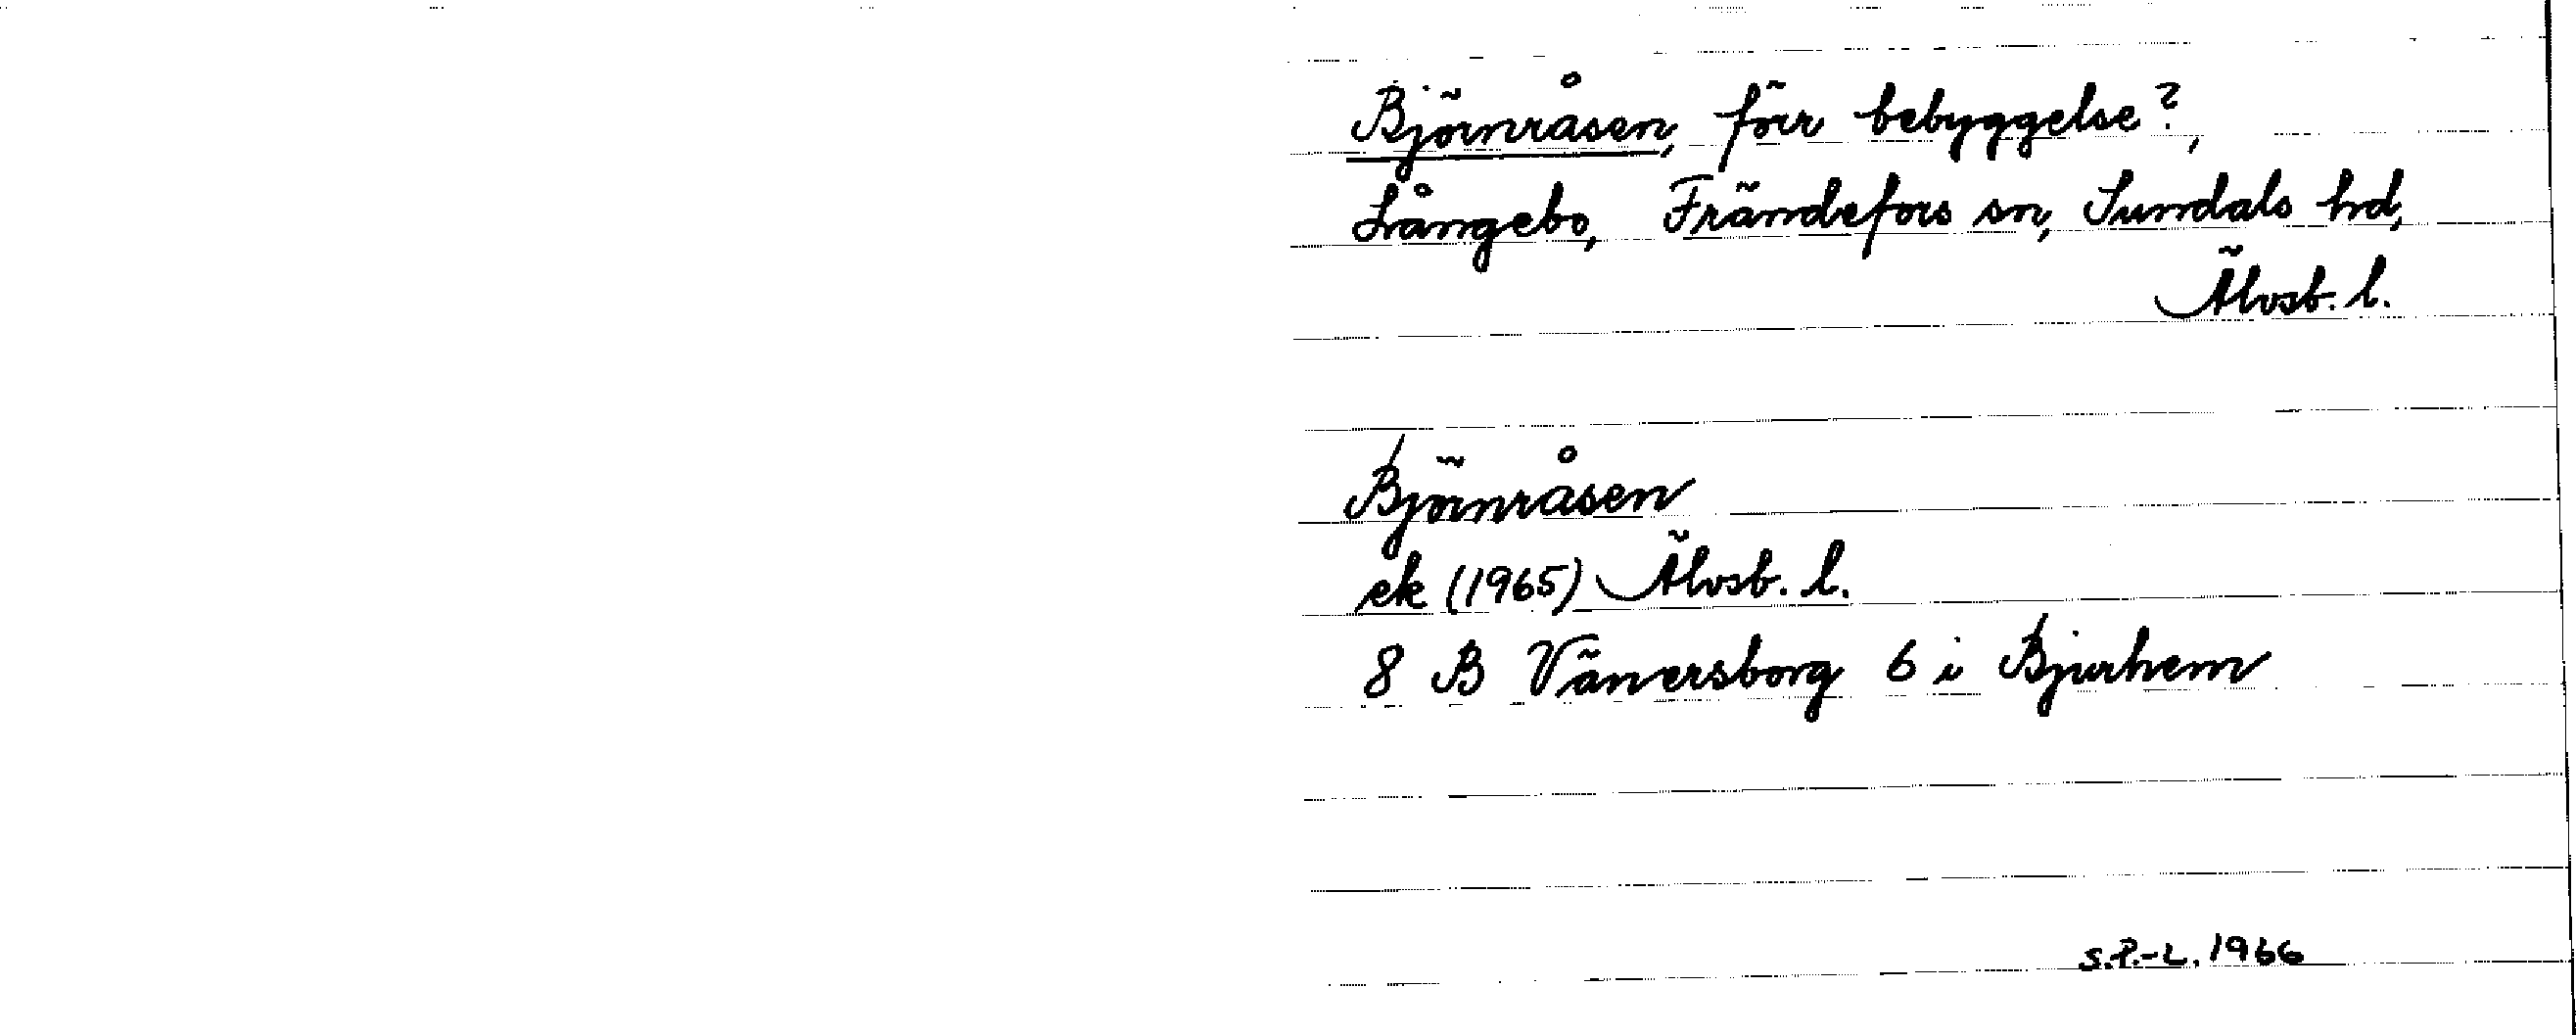 Björnråsen, förr bebyggelse?,
Långebo, Frändefors sn, Sundals hd,
Älvsb. l.
Björnråsen
ek (1965) Älvsb. l.
8 B Vänersborg 6 i Bjurhem
S.P.-L. 1966